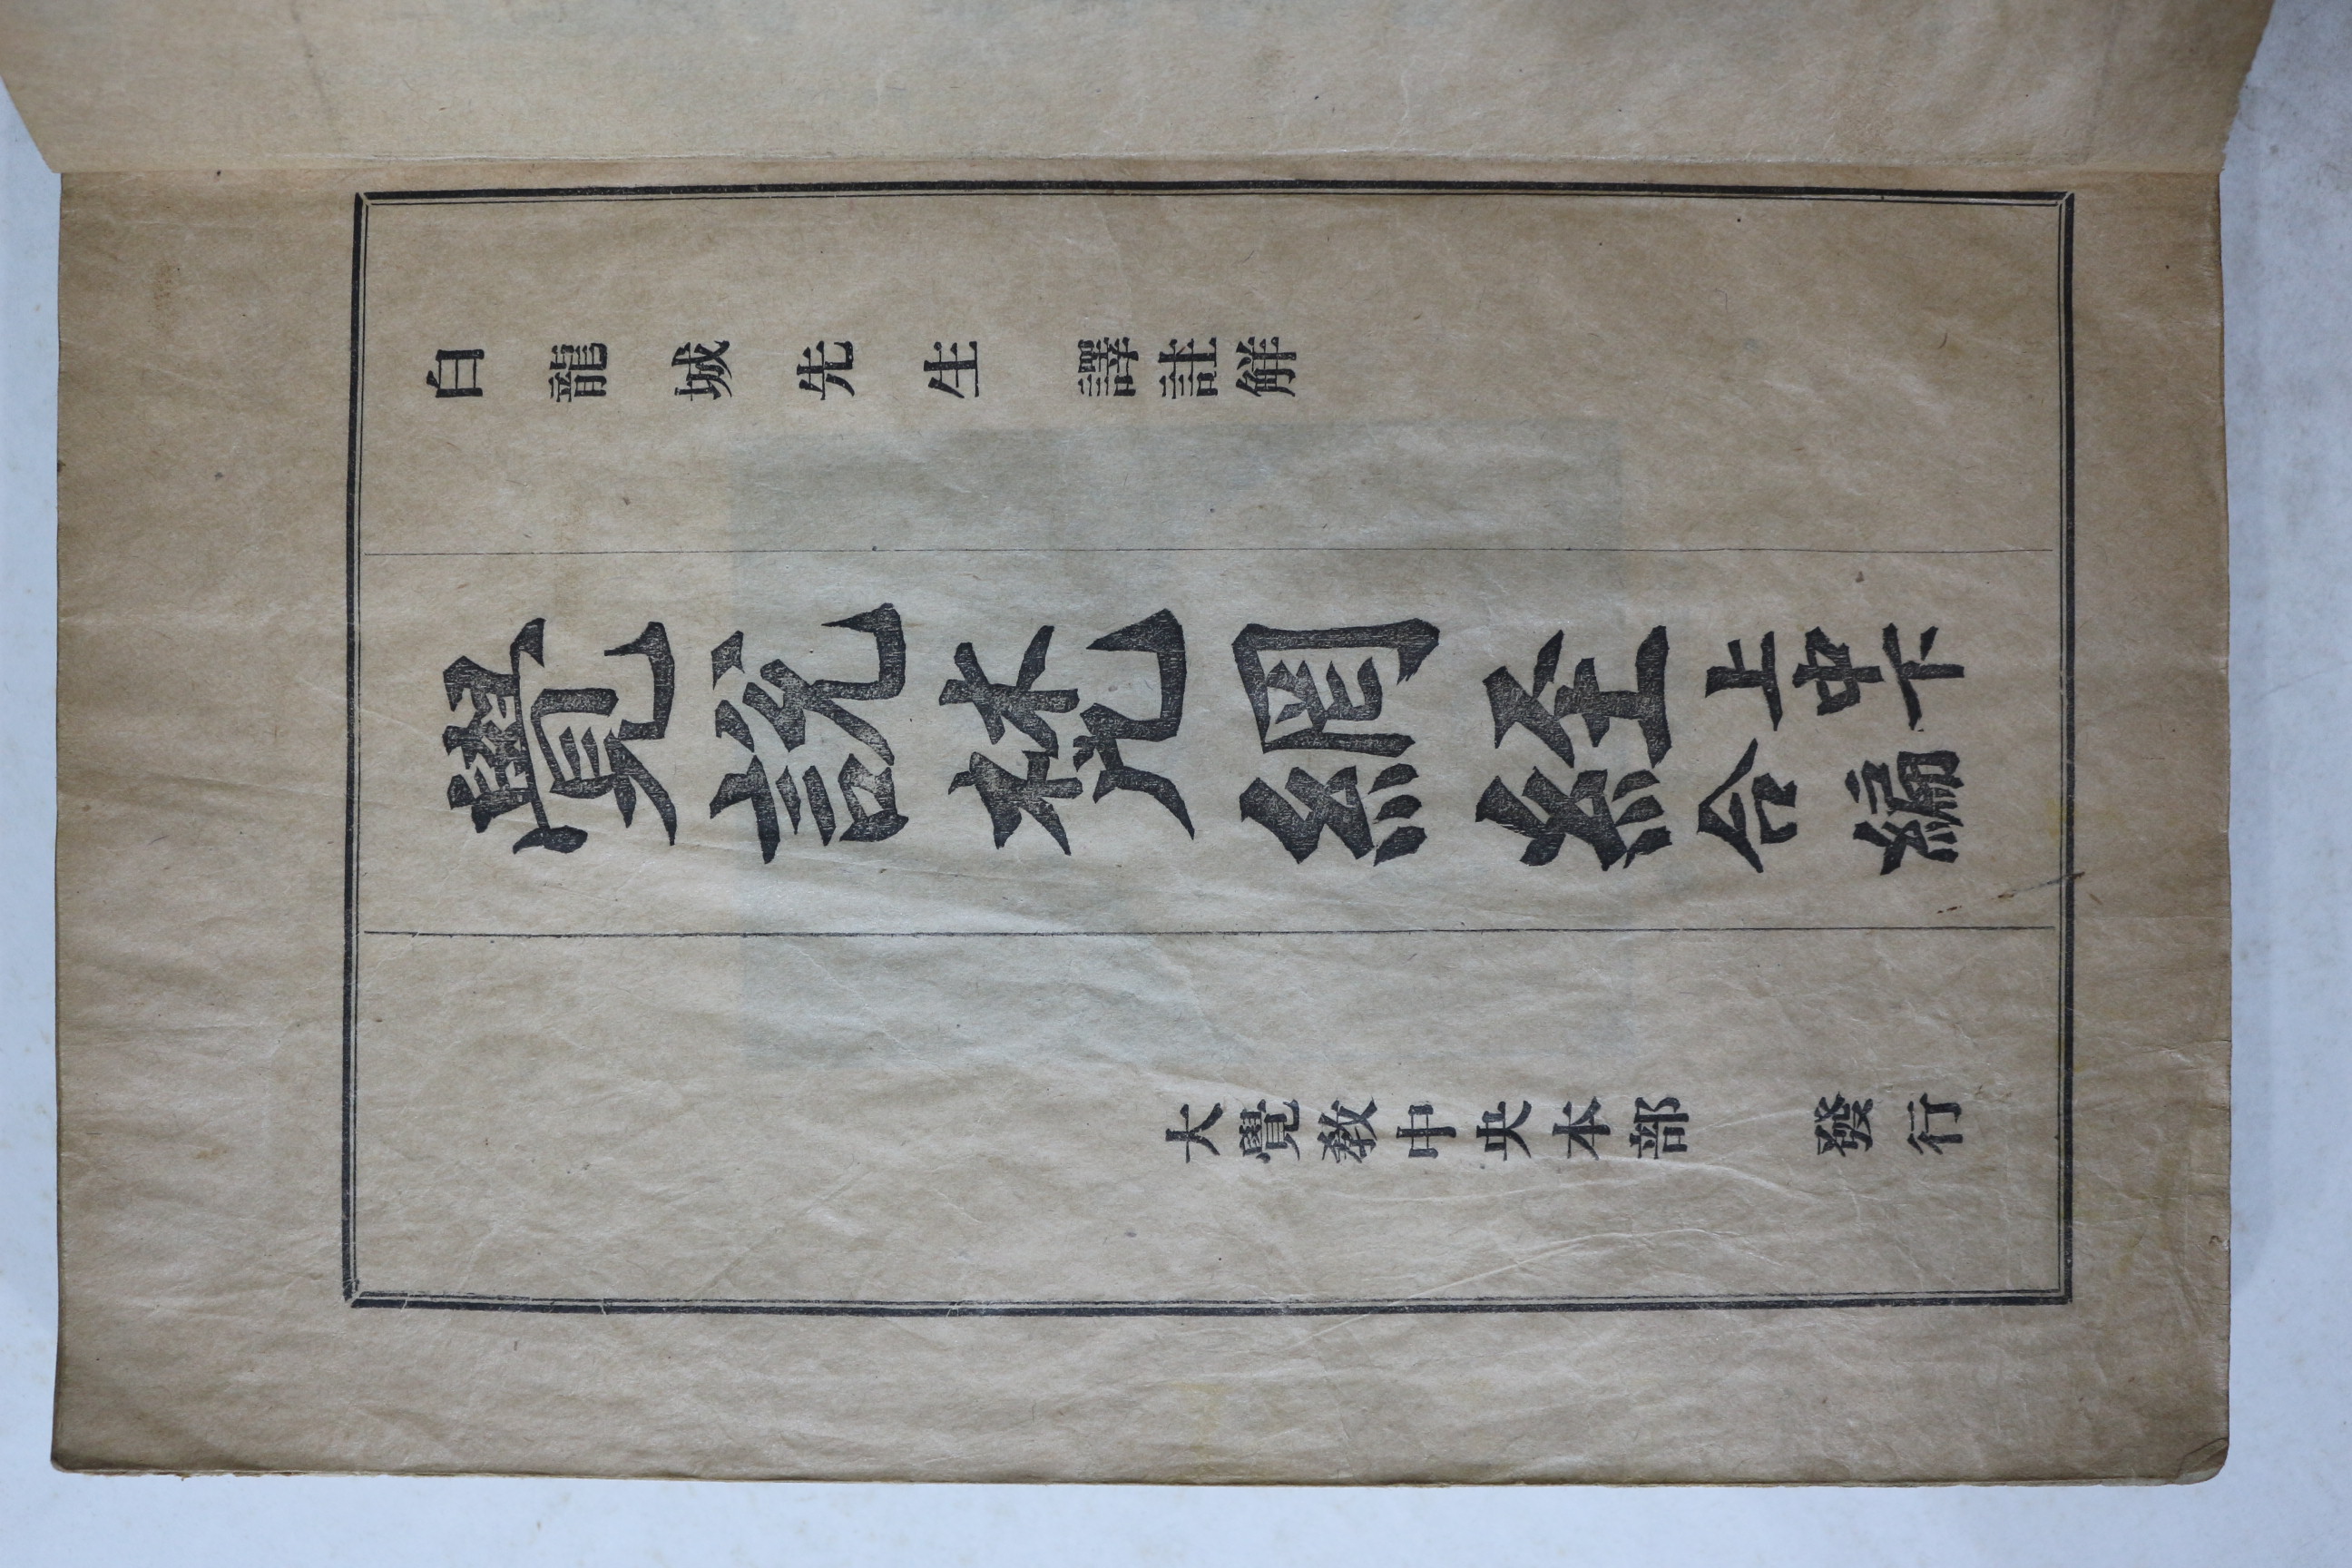 白龍城先生 譯註觧
覺說梵網經 上中下 合編
大覺教中央本部 發行